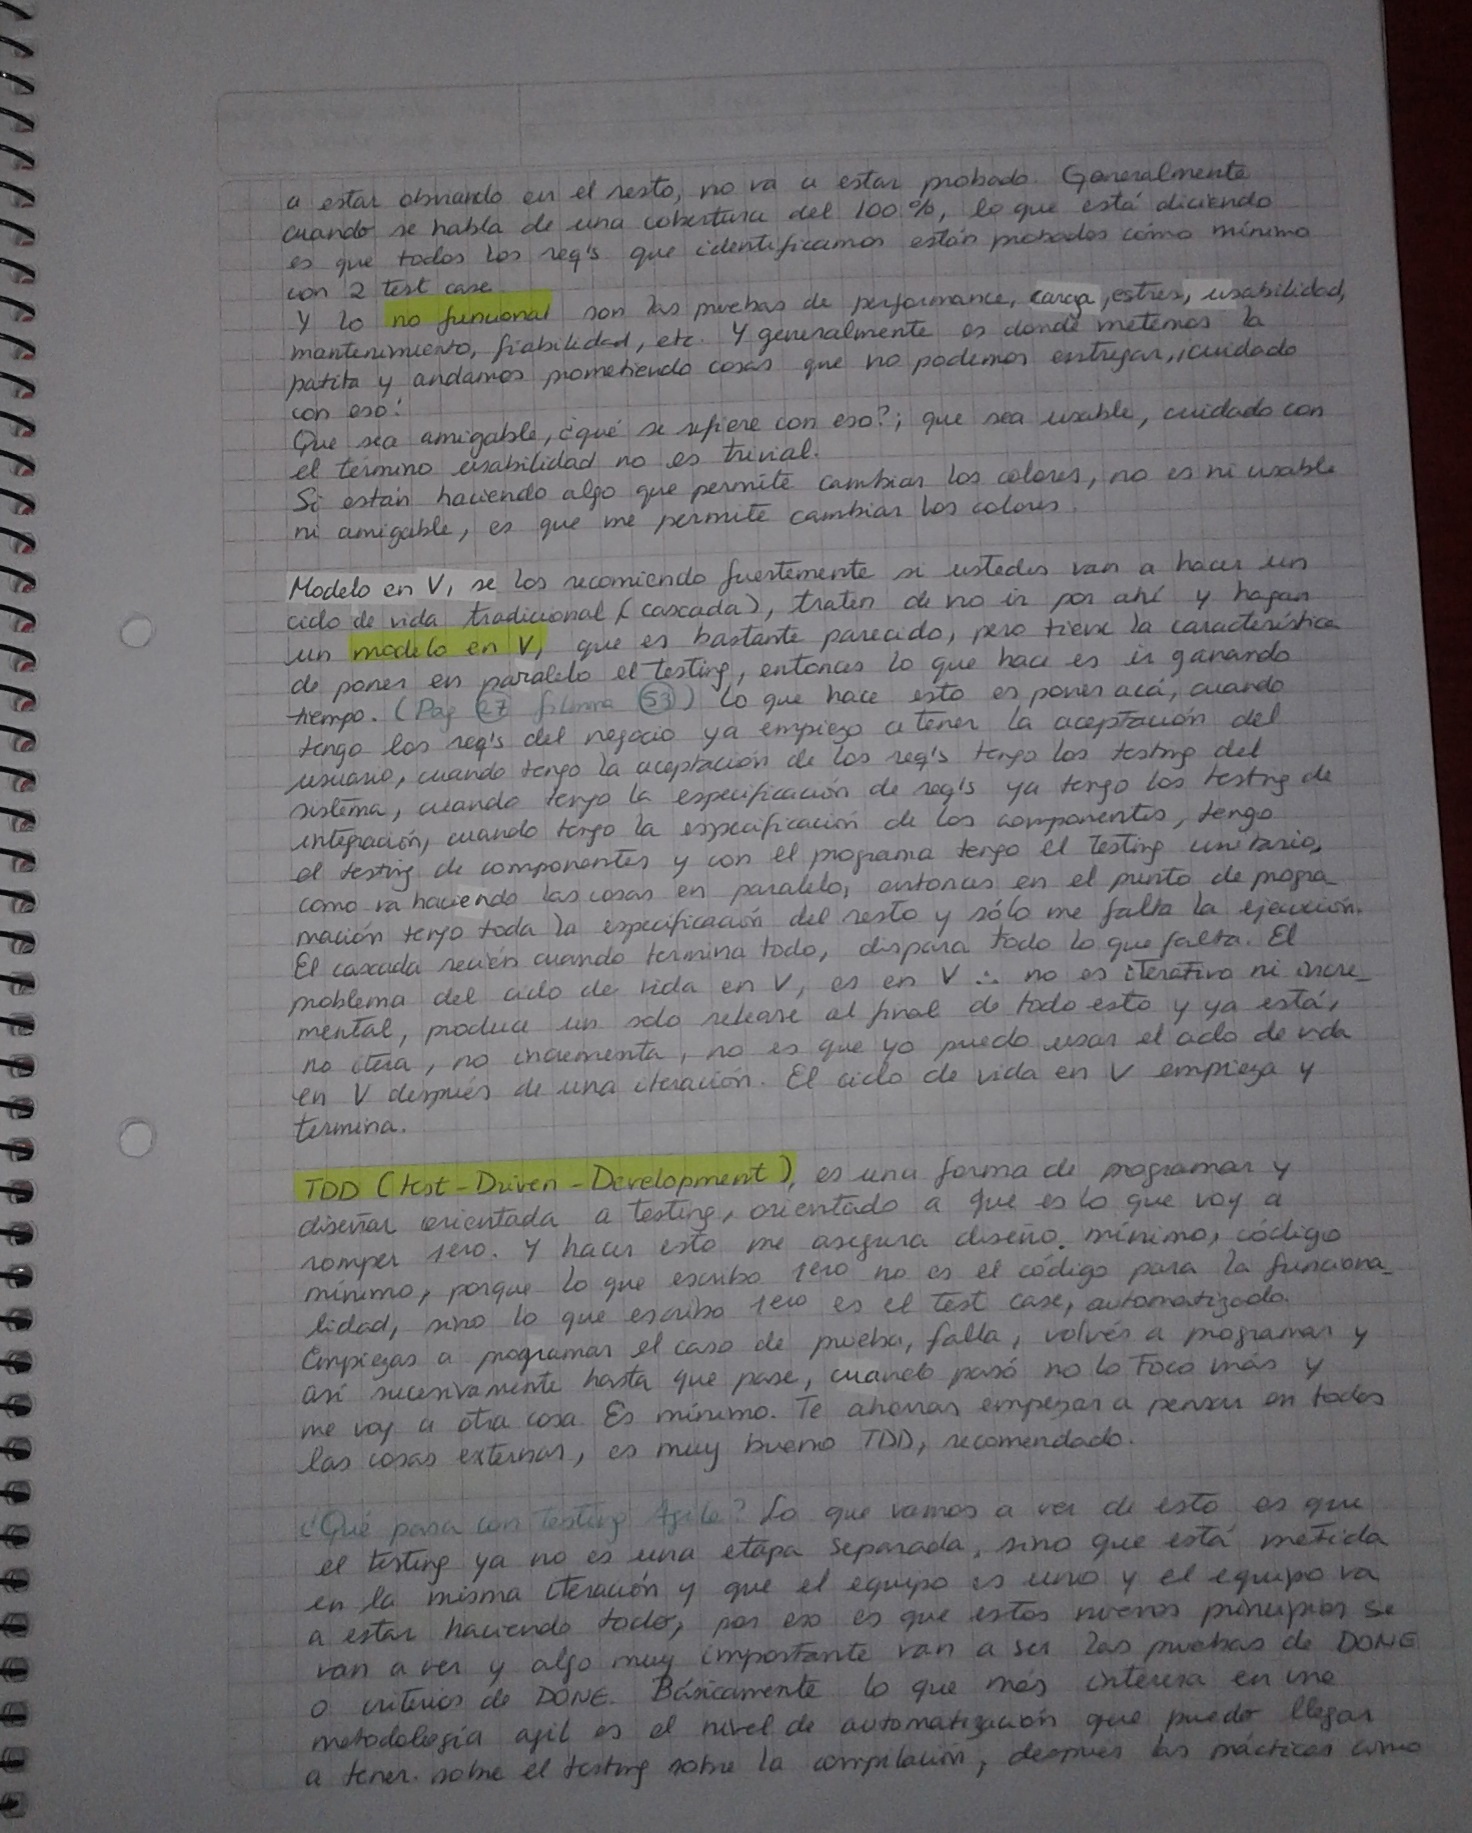 a estar obviando en el resto, no va a estar probado. Generalmente
cuando se habla de una cobertura del 100%, lo que está diciendo
es que todos los req's que identificamos están probados como mínimo
con 2 test case.
Y lo no funcional son las pruebas de performance, carga, estres, usabilidad,
mantenimiento, fiabilidad, etc. Y generalmente es donde metemos la
patita y andamos prometiendo cosas que no podemos entregar, ¡cuidado
con eso!
Que sea amigable, ¿qué se refiere con eso?; que sea usable, cuidado con
el término usabilidad no es trivial.
Si están haciendo algo que permite cambiar los colores, no es ni usable
ni amigable, es que me permite cambiar los colores.
Modelo en V, se los recomiendo fuertemente si ustedes van a hacer un
ciclo de vida tradicional (cascada), traten de no ir por ahí y hagan
un modelo en V, que es bastante parecido, pero tiene la característica
de poner en paralelo el testing, entonces lo que hace es ir ganando
tiempo. (Pag 27 filmina 53) Lo que hace esto es poner acá, cuando
tengo los req's del negocio ya empiezo a tener la aceptación del
usuario, cuando tengo la aceptación de los req's tengo los testing del
sistema, cuando tengo la especificación de req's ya tengo los testing de
integración, cuando tengo la especificación de los componentes, tengo
el testing de componentes y con el programa tengo el testing unitario,
como va haciendo las cosas en paralelo, entonces en el punto de progra
mación tengo toda la especificación del resto y sólo me falta la ejecución.
El cascada recién cuando termina todo, dispara todo lo que falta. El
problema del ciclo de vida en V, es en V ∴ no es iterativo ni incre_
mental, produce un solo release al final de todo esto y ya está,
no itera, no incrementa, no es que yo puedo usar el ciclo de vida
en V después de una iteración. El ciclo de vida en V empieza y
termina.
TDD (test-Driven-Development), es una forma de programar y
diseñar orientada a testing, orientado a que es lo que voy a
romper 1ero. Y hacer esto me asegura diseño mínimo, código
mínimo, porque lo que escribo 1ero no es el código para la funciona_
lidad, sino lo que escribo 1ero es el test case, automatizado.
Empiezas a programar el caso de prueba, falla, volvés a programar y
así sucesivamente hasta que pase, cuando pasó no lo toco más y
me voy a otra cosa. Es mínimo. Te ahorras empezar a pensar en todas
las cosas externas, es muy bueno TDD, recomendado.
¿Qué pasa con Testing Agile? Lo que vamos a ver de esto es que
el testing ya no es una etapa separada, sino que está metida
en la misma iteración y que el equipo es uno y el equipo va
a estar haciendo todo, por eso es que estos nuevos principios se
van a ver y algo muy importante van a ser las pruebas de DONE
o criterios de DONE. Básicamente lo que más interesa en una
metodología agil es el nivel de automatización que puedo llegar
a tener sobre el testing sobre la compilación, después las prácticas como